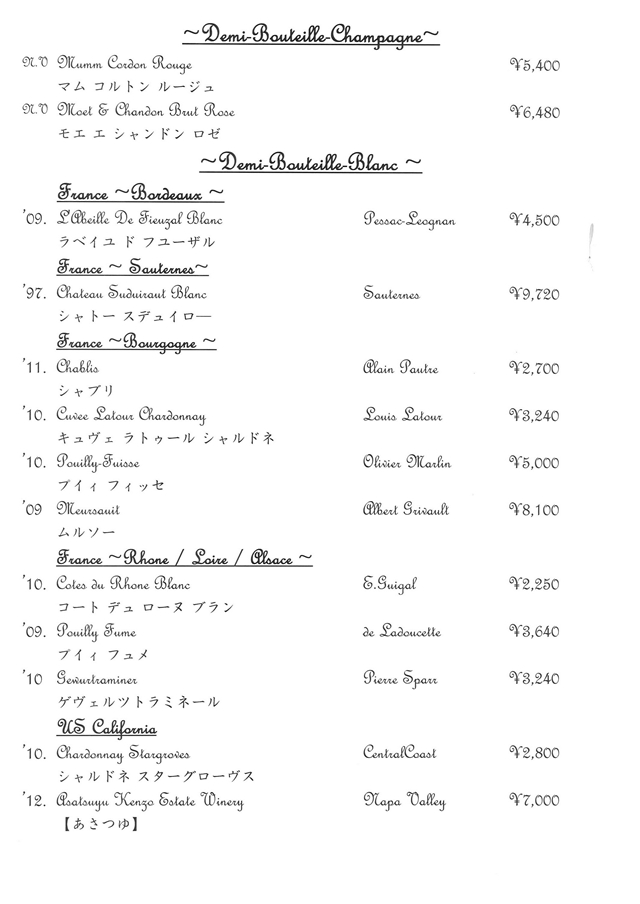 ~Demi-Bouteille-Champagne~
N.V Mumm Cordon Rouge ¥5,400
マム コルトン ルージュ
N.V Moet & Chandon Brut Rose ¥6,480
モエ エ シャンドン ロゼ
~Demi-Bouteille-Blanc ~
France ~Bordeaux ~
'09. L'Abeille De Fieuzal Blanc Pessac-Leognan ¥4,500
ラベイユ ド フユーザル
France ~ Sauternes~
'97. Chateau Suduiraut Blanc Sauternes ¥9,720
シャトー スデュイロ―
France ~Bourgogne ~
'11. Chablis Alain Pautre ¥2,700
シャブリ
'10. Cuvee Latour Chardonnay Louis Latour ¥3,240
キュヴェ ラトゥール シャルドネ
'10. Pouilly-Fuisse Olivier Marlin ¥5,000
プイィ フィッセ
'09 Meursauit Albert Grivault ¥8,100
ムルソー
France ~Rhone / Loire / Alsace ~
'10. Cotes du Rhone Blanc E.Guigal ¥2,250
コート デュ ローヌ ブラン
'09. Pouilly Fume de Ladoucette ¥3,640
プイィ フュメ
'10 Gewurtraminer Pierre Sparr ¥3,240
ゲヴェルツトラミネール
US California
'10. Chardonnay Stargroves CentralCoast ¥2,800
シャルドネ スターグローヴス
'12. Asatsuyu Kenzo Estate Winery Napa Valley ¥7,000
【あさつゆ】